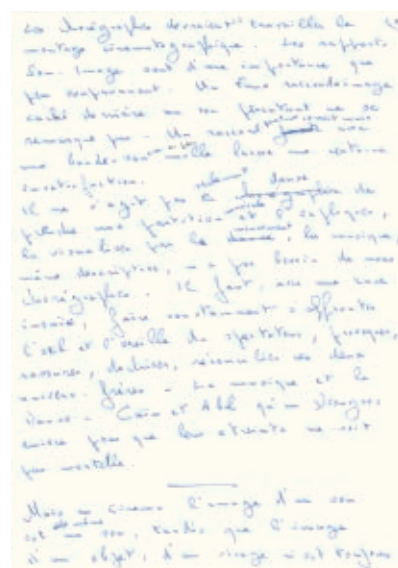 Les chorégraphes devraient travailler le
montage cinématographique. Les rapports
Son-Image sont d'une importance que
peu soupçonnent. Un faux raccord image
caché derrière un son percutant ne se
remarque pas. Un raccord avec
une bande son molle laisse une certaine
insatisfaction.
Il ne s'agit pas en danse de
prendre une partition et l'expliquer,
la visualiser par le mouvement, la musique,
même descriptive, n'a pas besoin de nous
chorégraphes. Il faut, avec une
, faire constamment s'affronter
l'œil et l'oreille du spectateur, provoquer,
rassurer, déchirer, réconcilier ces deux
frères - La musique et la
Danse - Caïn et Abel qu'un
pour que leur étreinte ne soit
pas mortelle.
Mais au Cinéma l'image d'un son
est un son, tandis que l'image
d'un objet, d'un visage n'est toujours